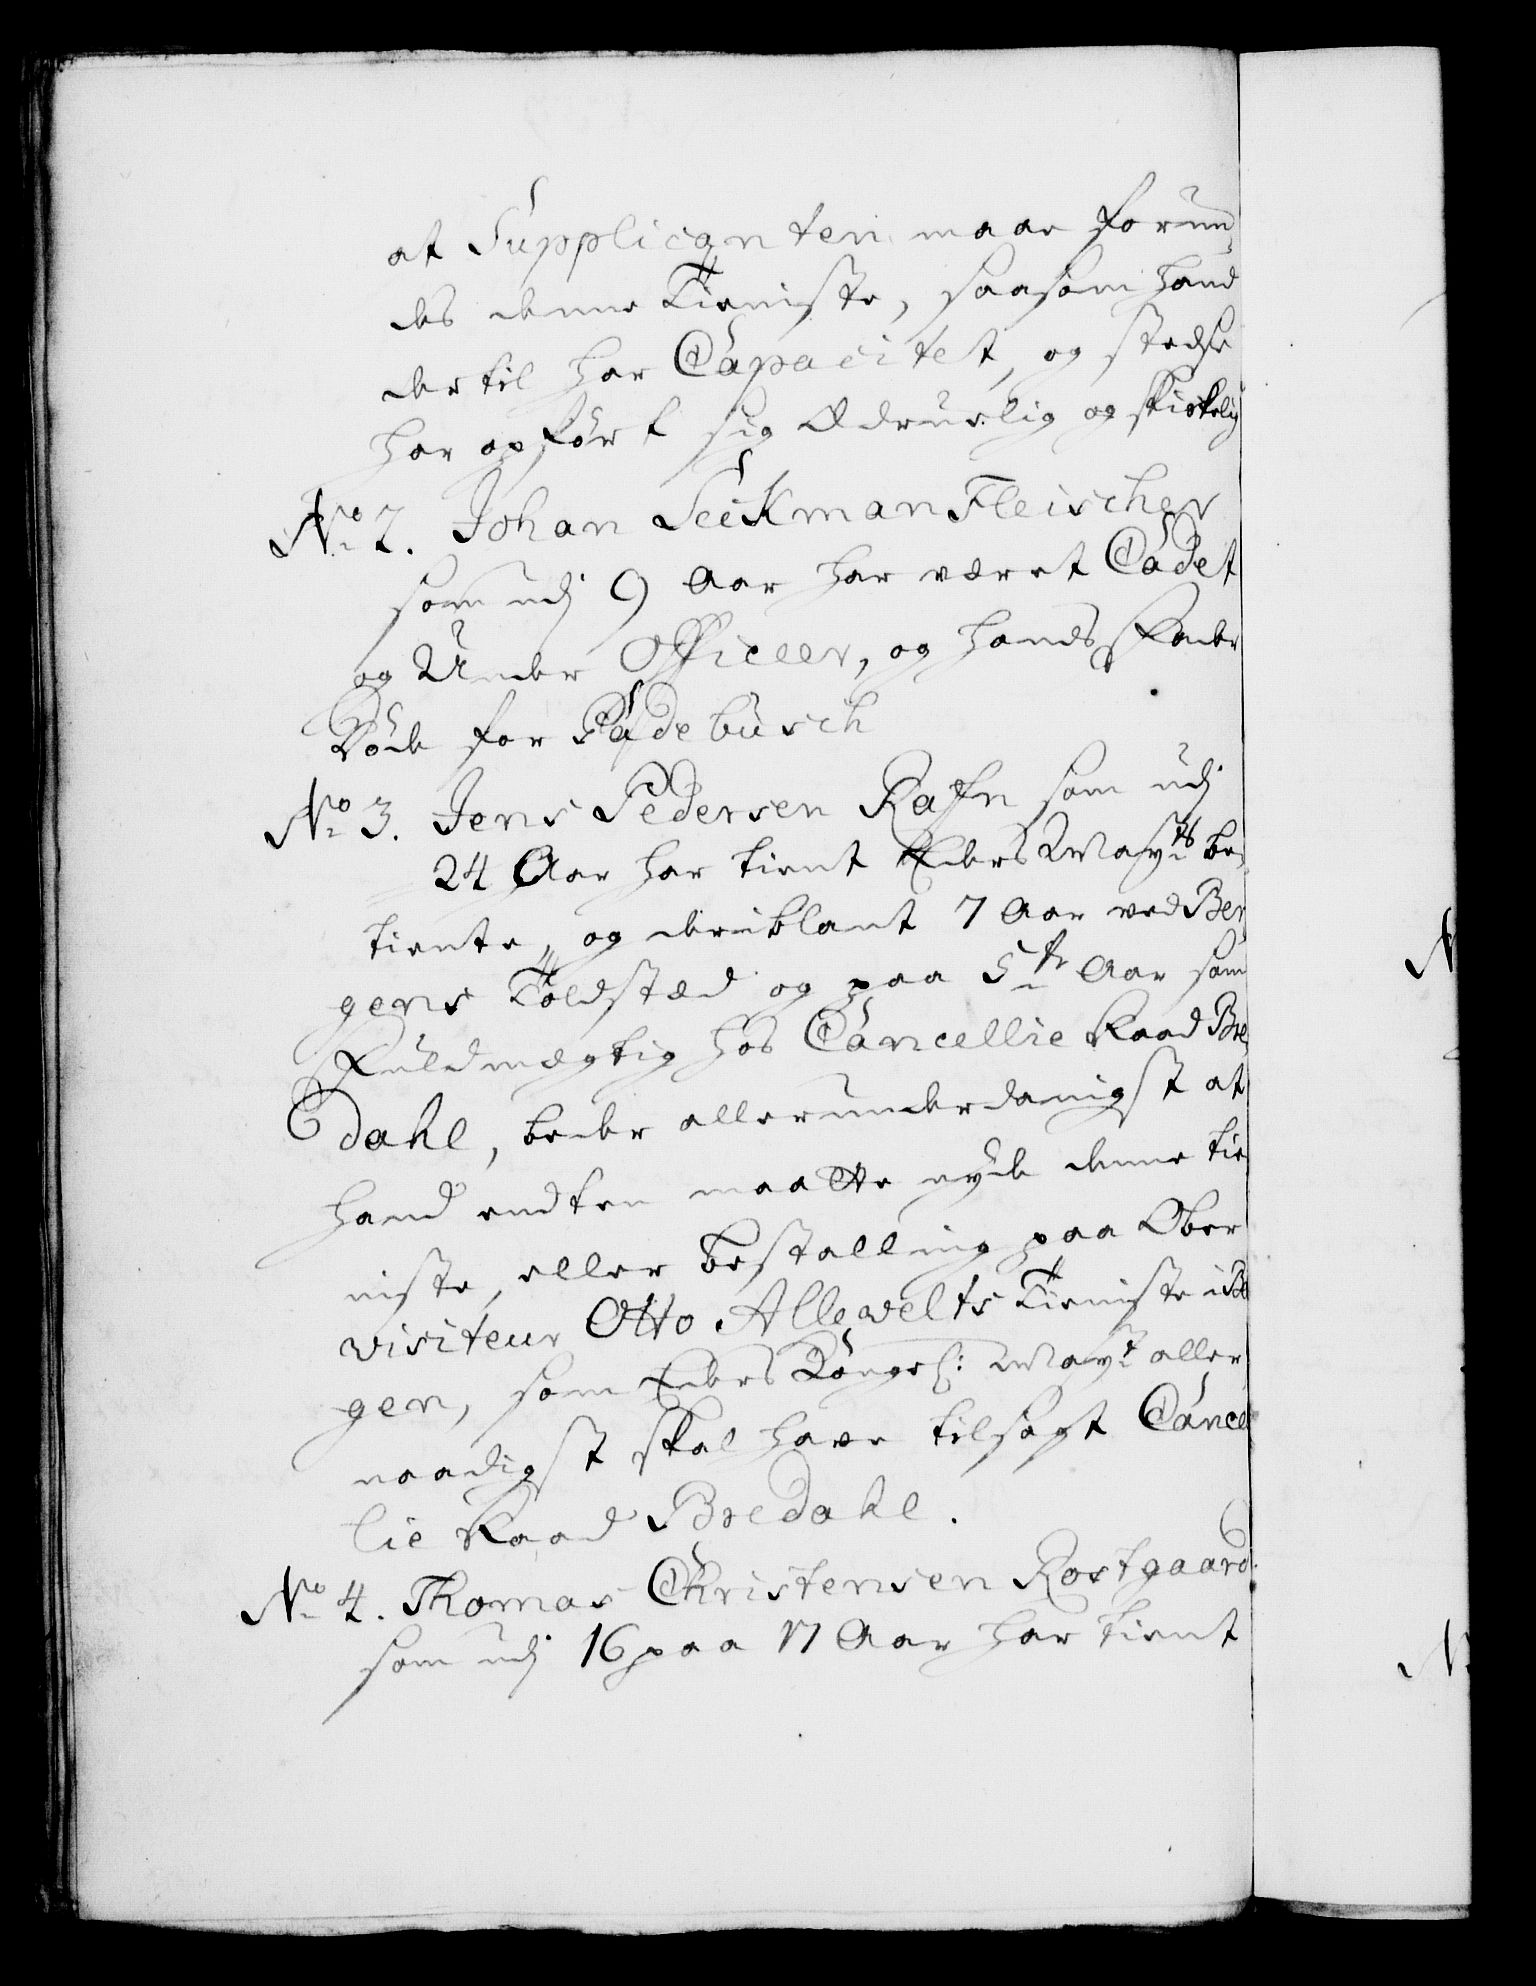 at Supplicanten maae forun-
des denne Tieniste, saasom hand
dertil har Capacitet, og stedse
har opført sig Ædruelig og skickelig
No 2. Johan Seckman Fleischer
som udj 9 Aar har været Cadet
og Under Officeer, og hands Fader
Døde for Gadebusch
No 3. Jens Pedersen Rafn som udj
24 Aar har tient Eders Mayts be-
tiente, og deriblant 7 Aar ved Ber
gens Toldstæd og paa 5te Aar som
Fuldmægtig hos Cancellie Raad Bre
dahl, beder allerunderdanigst at
hand endten maatte nyde denne tie
niste, eller bestalling paa Ober
visiteur Otto Allewelts Tieniste i Ber
gen, som Eders Kongel: Mayt aller
naadigst skal have tilsagt Cancel
lie Raad Bredahl.
No 4. Thomas Christensen Rostgaard
som udj 16 paa 17 Aar har tient